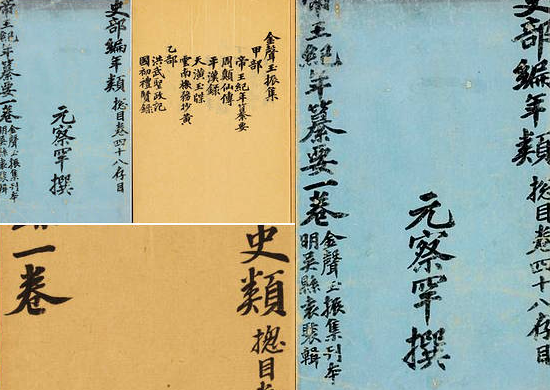 史部編年類 揔目卷四十八存目
元察罕撰
帝王紀年纂要一卷 金聲玉振集刊本
明吳縣袁褧輯
金聲玉振集
甲部
帝王紀年纂要
周顛仙傳
平漢錄
天潢玉牒
雲南機務抄黃
乙部
洪武聖政記
國初禮賢錄
史類 揔目
一卷
史部編年類 揔目卷四十八存目
元察罕撰
帝王紀年纂要一卷 金聲玉振集刊本
明吳縣袁褧輯